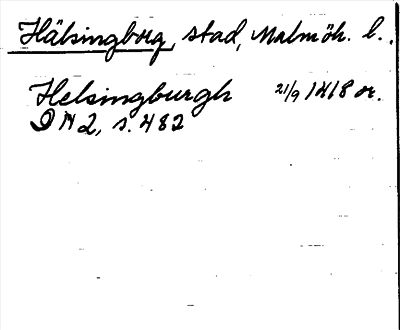 Hälsingborg, stad, Malmöh. l.
Helsingburgh 21/9 1418 or.
D N 2, s. 482